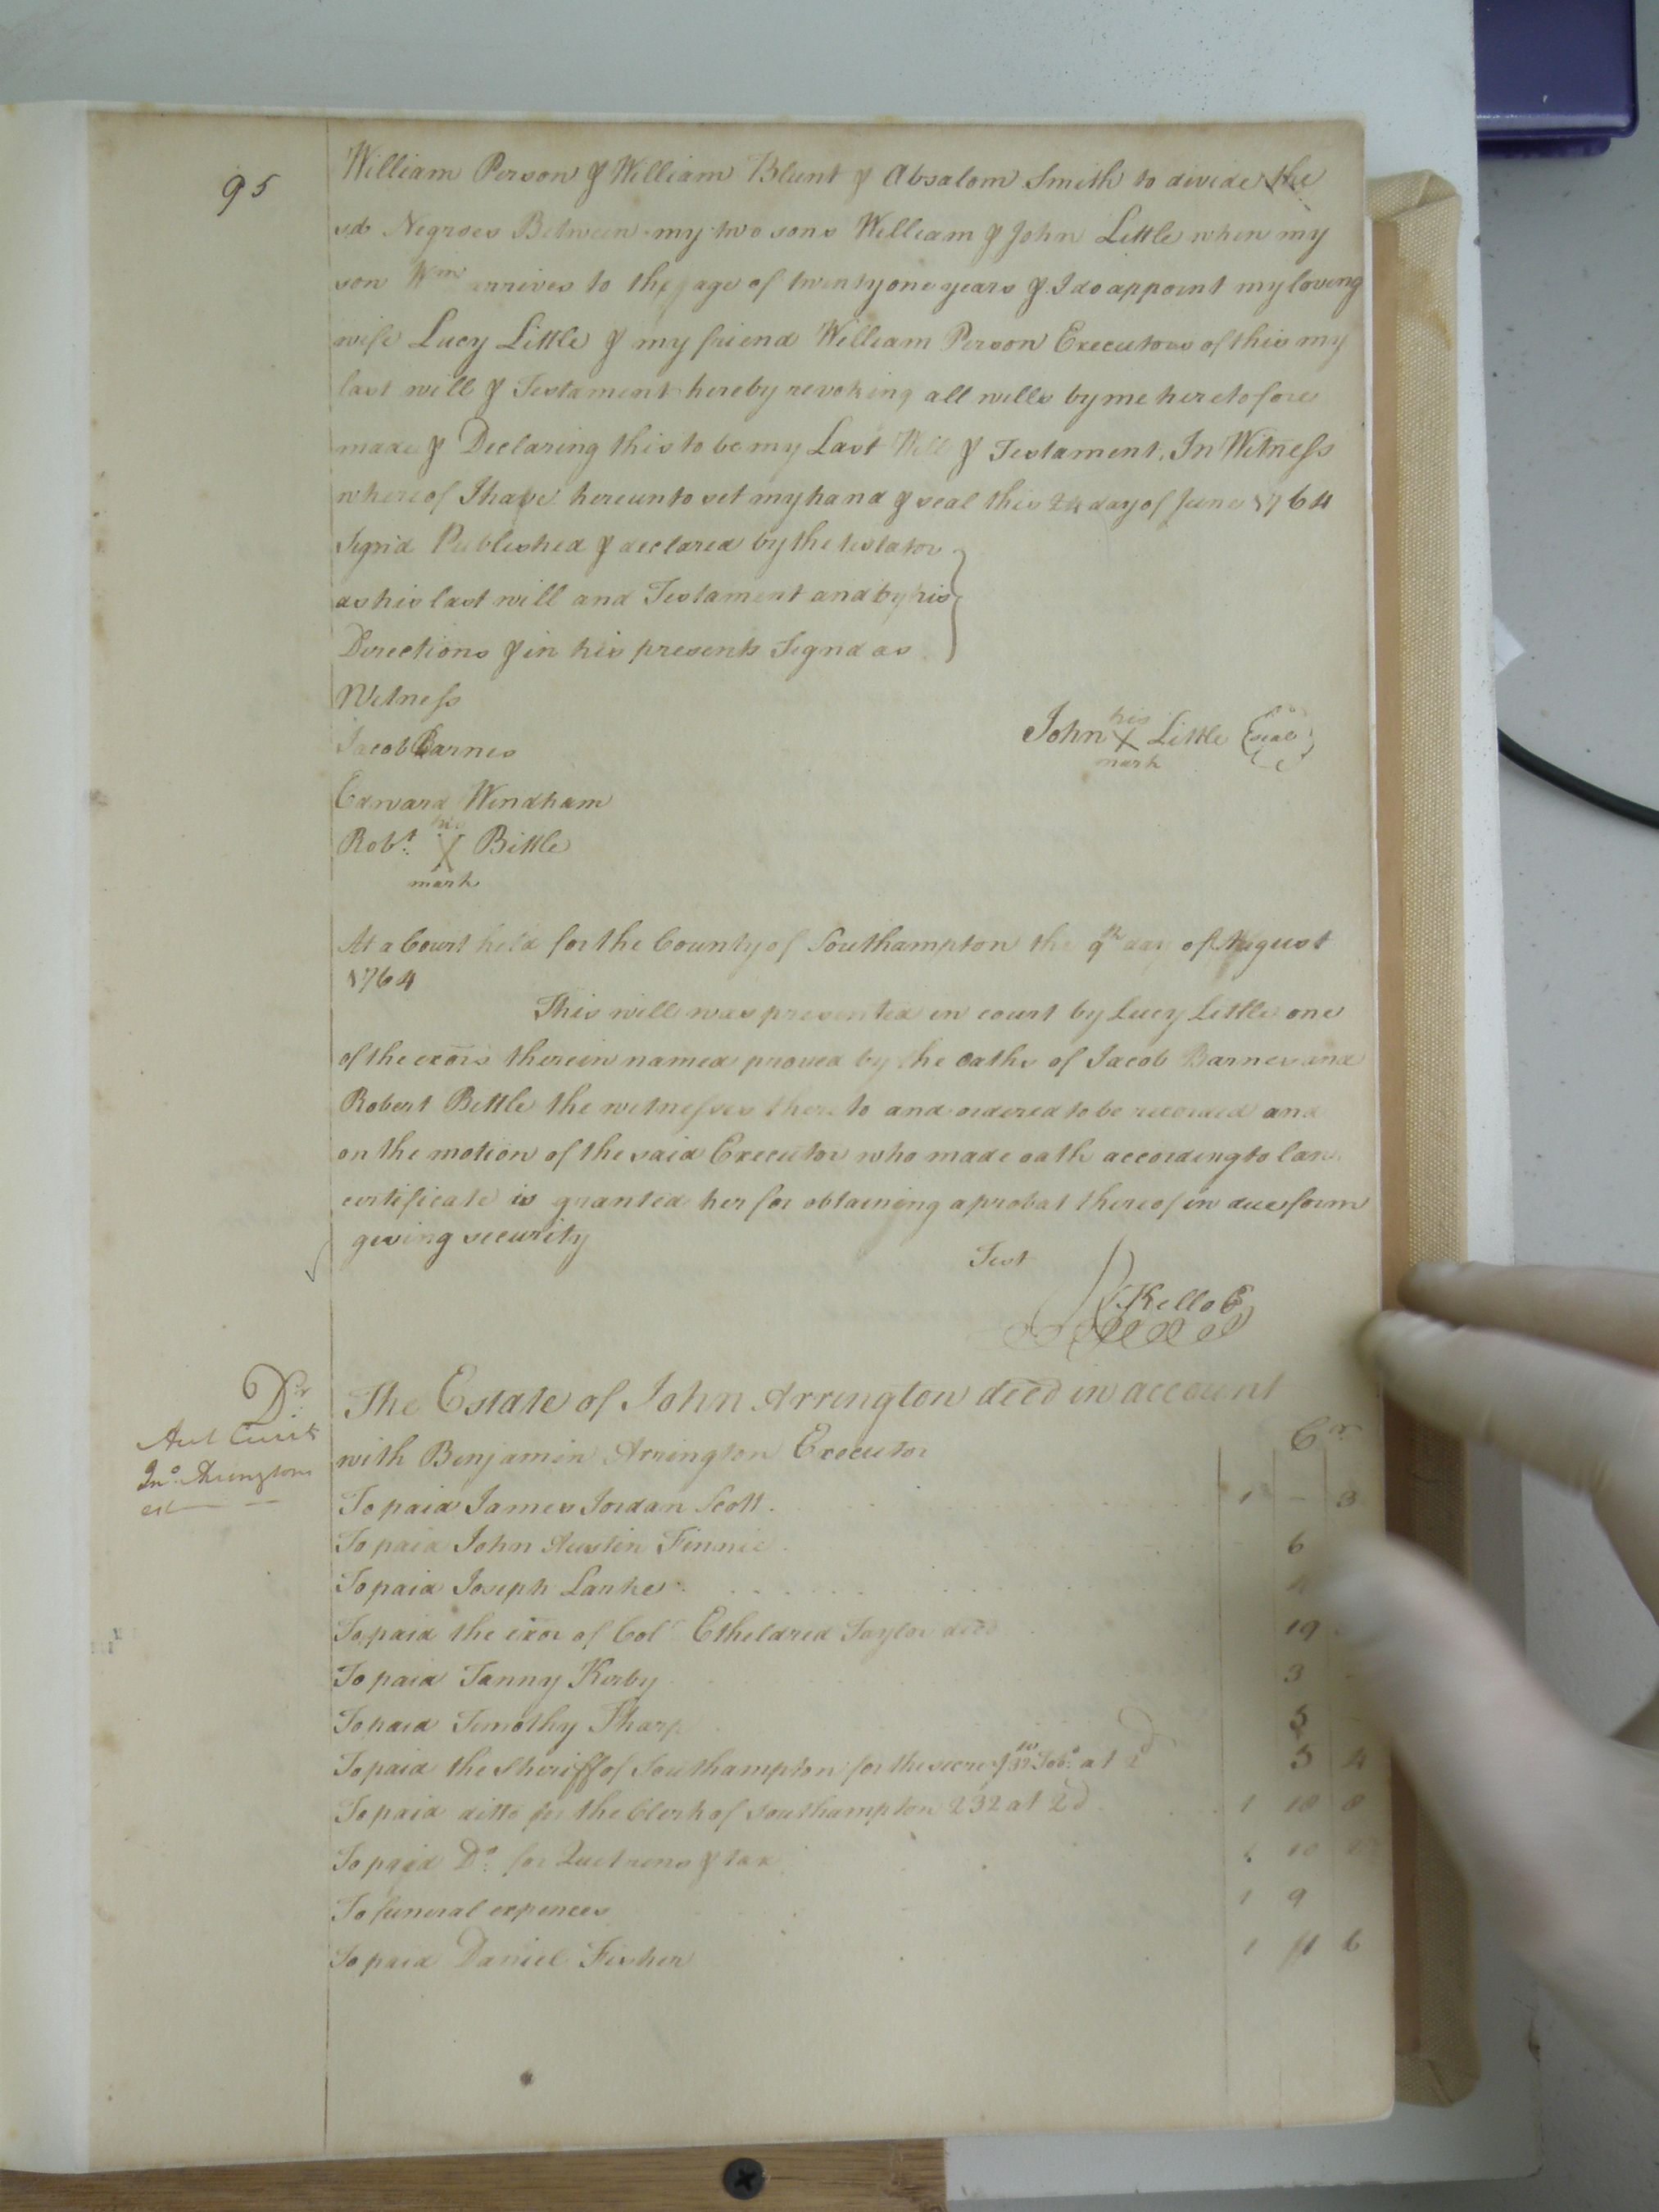 95
William Person & William Blunt & Absalom Smith to divide the
sd Negroes Between my two sons William & John Little when my
son Wm arrives to the age of twenty one years & I do appoint my loving
wife Lucy Little & my friend William Person Executors of this my
last will & Testament hereby revoking all wills by me heretofore
made & Declaring this to be my Last Will & Testament. In Witness
whereof I have hereunto set my hand & seal this 24 day of June 1764
Signd Published & declared by the testator
as his last will and Testament and by his
Directions & in his presents Signd as
Witness
Jacob Barnes
John his X mark Little (seal)
Edward Windham
Robt. his X mark Bittle
At a Court held for the County of Southampton the 9th day of August
1764
This will was presented in court by Lucy Little one
of the exors therein named proved by the oaths of Jacob Barnes and
Robert Bittle the witnesses thereto and ordered to be recorded and
on the motion of the said Executor who made oath according to law
certificate is granted her for obtaining a probat thereof in due form
giving security
Test
R Kello C
Dr. The Estate of John Arrington decd in account
Jno. Arrington
est
with Benjamin Arrington Executor Cr
To paid James Jordan Scott 1 - 3
To paid John Austin Finnie 6
To paid Joseph Lanke
To paid the exor of Col Etheldred Taylor decd 19
To paid Tanny Kirby 3
To paid Timothy Tharp 5
To paid the Sheriff of Southampton for the secrey 32 lbs Tobo. at 2d 5 4
To paid ditto for the Clerk of Southampton 232 at 2d 1 18 8
To paid Do. for Quitrens & tax 10
To funeral expences 1 9
To paid Daniel Fisher 1 11 6